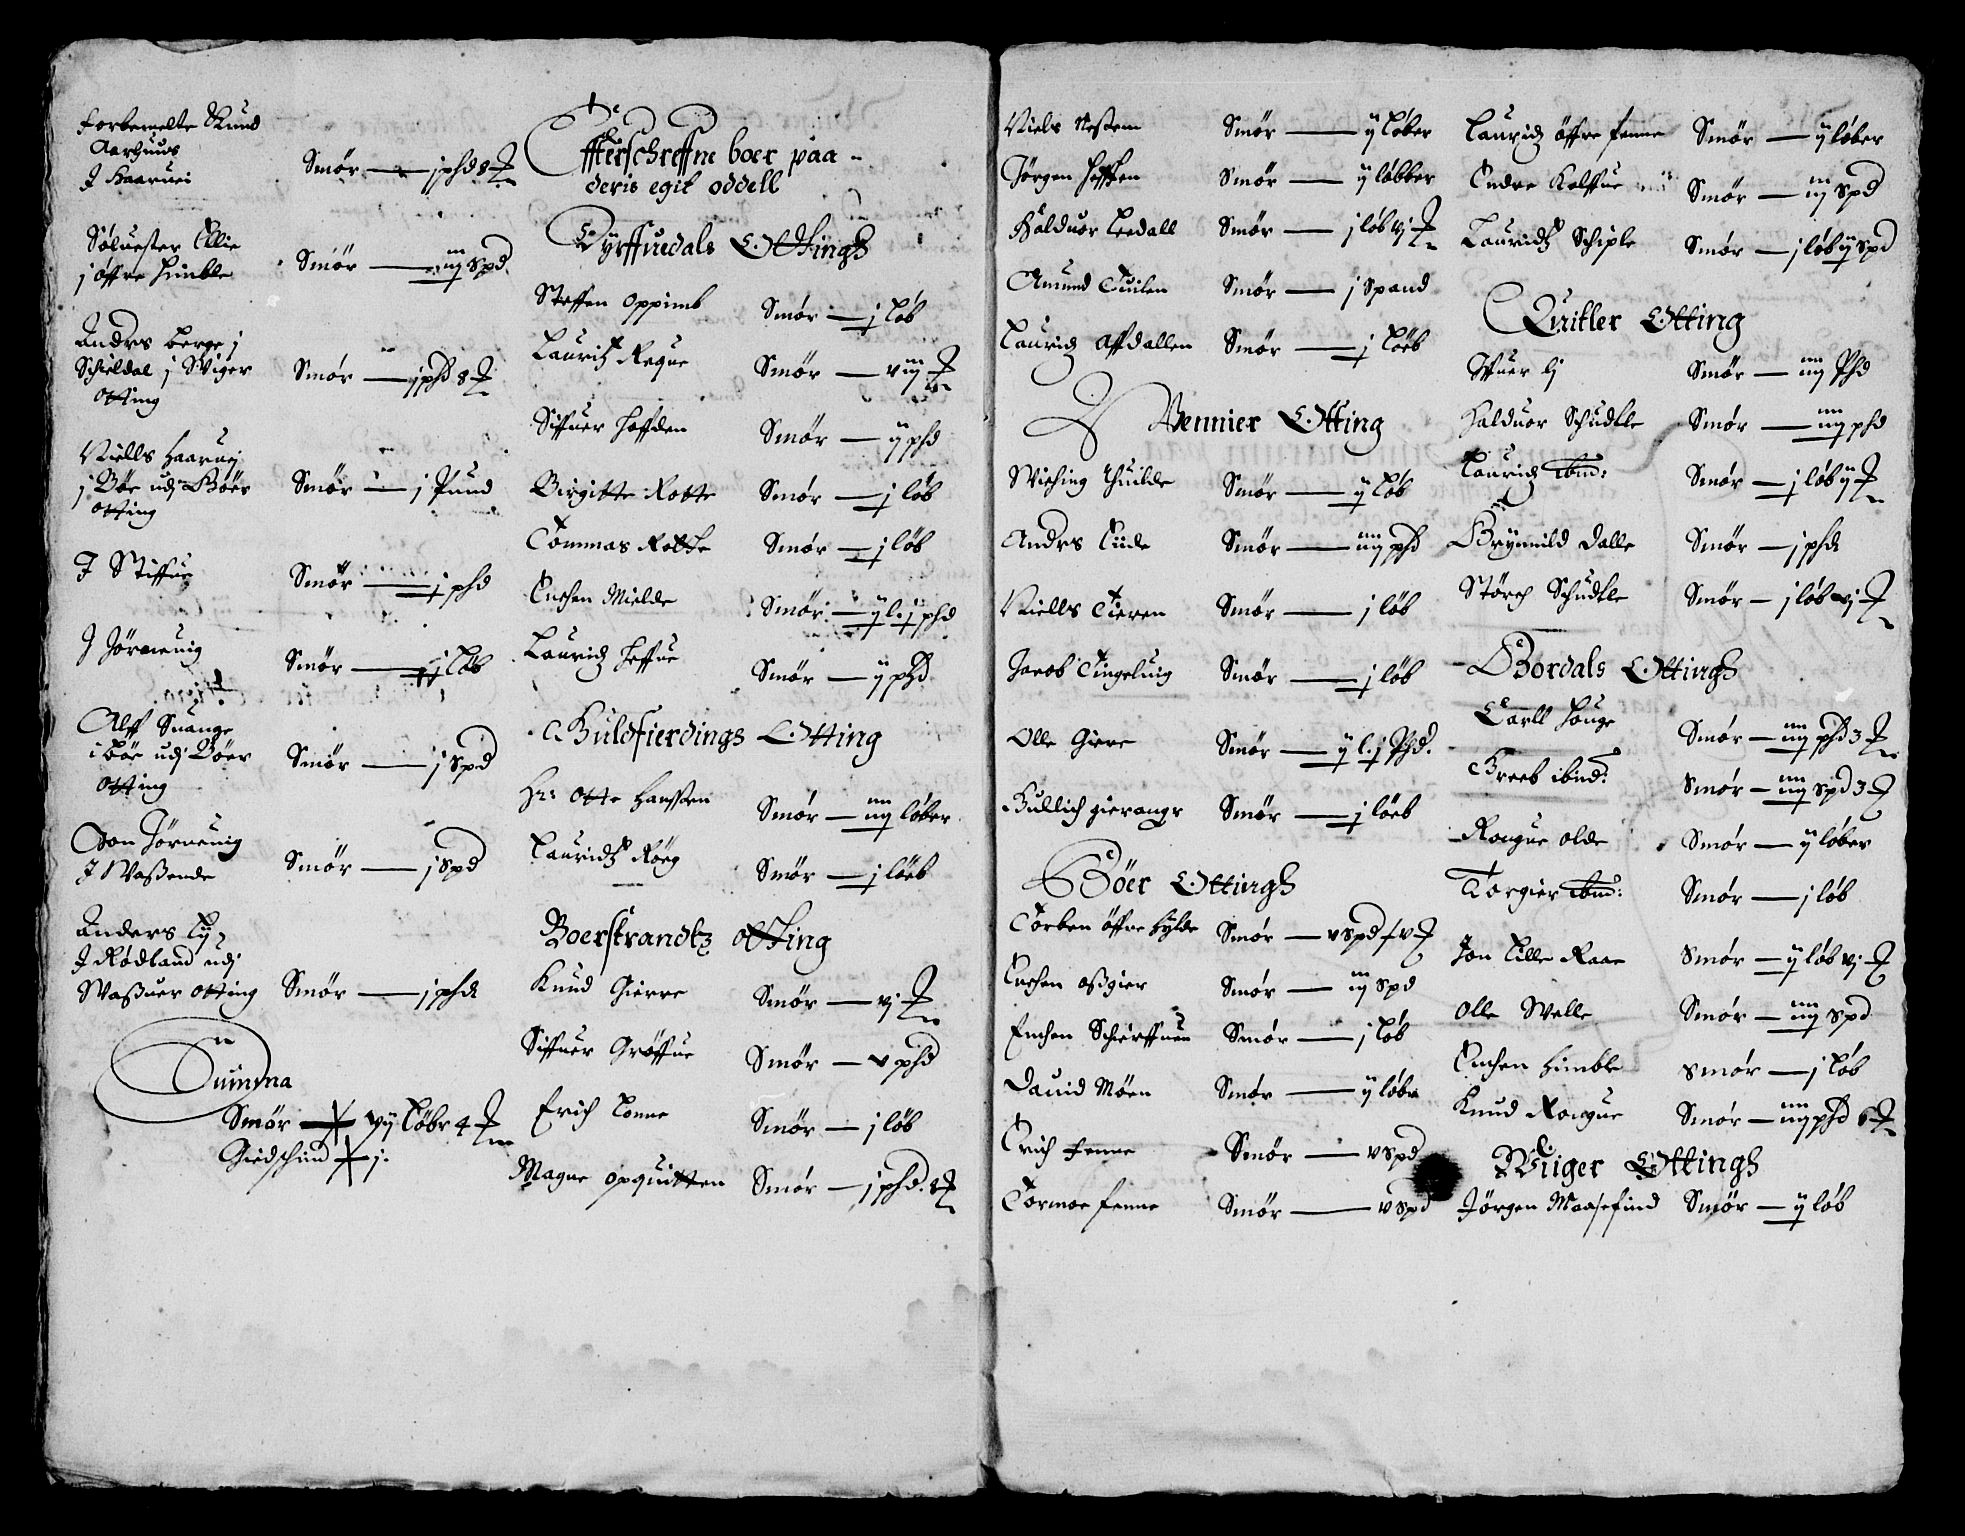 Forbemelte Knud
Aarhuus
J Haaruei Smør — j phd 8 ℔
Søluester Ellie
j öffre Himble Smør — iiij spd
Anders Berge j
Schieldal j Wiger
Otting Smør — j phd 8 ℔
Niells Haaruej
j Bøe udj Böer
Otting Smör — j Pund
J Stiffue Smør — j phd
J Jörneuig Smør — j Löb
Alff Suange
i Böe udj Böer
Otting Smör — j spd
Jon Jörneuig
J Waßende Smör — j spd
Anders Ly
J Rødland udj
Waßuer Otting Smör — j phd
Summa
Smör — Löbr 4 ℔
Giedschind — j.
Effterschreffne boer paa
deris egit oddell
Dyrffuedals Ottingh
Steffen Oppimb Smör — j löb
Lauritz Reque Smör — viij ℔
Siffuer Hoffden Smör — ij phd
Birgitte Rotte Smör — j löb
Tommas Rotte Smör — j löb
Enchen Mielde Smör — ij l. j phd
Lauridz Heffue Smör — ij phd
Guldfierdings Otting
Hr: Otte Hanssen Smör — iiij løber
Lauridtz Röeg Smör — j löeb
Boerstrandtz otting
Knud Gierre Smör — vj ℔
Siffuer Gröffue Smör — v phd
Erich Lonne Smör — j löb
Magne opquitten Smör — j phd. 8 ℔
Niels Nestem Smör — ij løber
Jörgen Heffhen Smör — ij löbber
Halduor Leedall Smör — j löb vj ℔
Amund Tuilen Smör — j spand
Lauridz Affdallen Smör — j Löeb
Wennier Otting
Wiching Thuilde Smör — ij löb
Andrs Lide Smör — iiij phd
Niells Tieren Smör — j löb
Jacob Tingeluig Smör — j löb
Olle Giere Smör — ij l. j Phd.
Gullich gierangr Smör — j löeb
Böer Ottingh
Torben öffre hylde Smør — v spd / v ℔
Enchen oßgier Smör — iij spd
Enchen Schierffuen Smör — j löb
Dauid Möen Smør — ij löbr
Erich Fenne Smör — v spd
Tormoe fenne Smör — v spd
Lauridz öffre fenne Smör — ij löber
Endre Kolffue Smör — iij spd
Lauridtz Schiple Smør — j löb ij spd
Quitler Otting
Iffuer Lj Smör — iiij Phd
Halduor Schudtle Smör — iiij phd
Lauridz Ibid: Smör — j löb ij ℔
Brynnild Dalle Smör — j phd
Störch Schudtle Smör — j löb vj ℔
Bordals Ottingh
Carll Houge Smör — iiij phd 3 ℔
Greeb ibid: Smör — iiij spd 3 ℔
Rongue olde Smör — ij løber
Torgier Ibid: Smör — j löb
Jon Lille Raae Smör — ij löb vj ℔
Olle Melle Smör — iiij spd
Enchen Himble Smör — j löb
Knud Rongue Smör — iiij phd 6 ℔
Wiiger Ottingh
Jörgen Maasefind Smör — ij löb